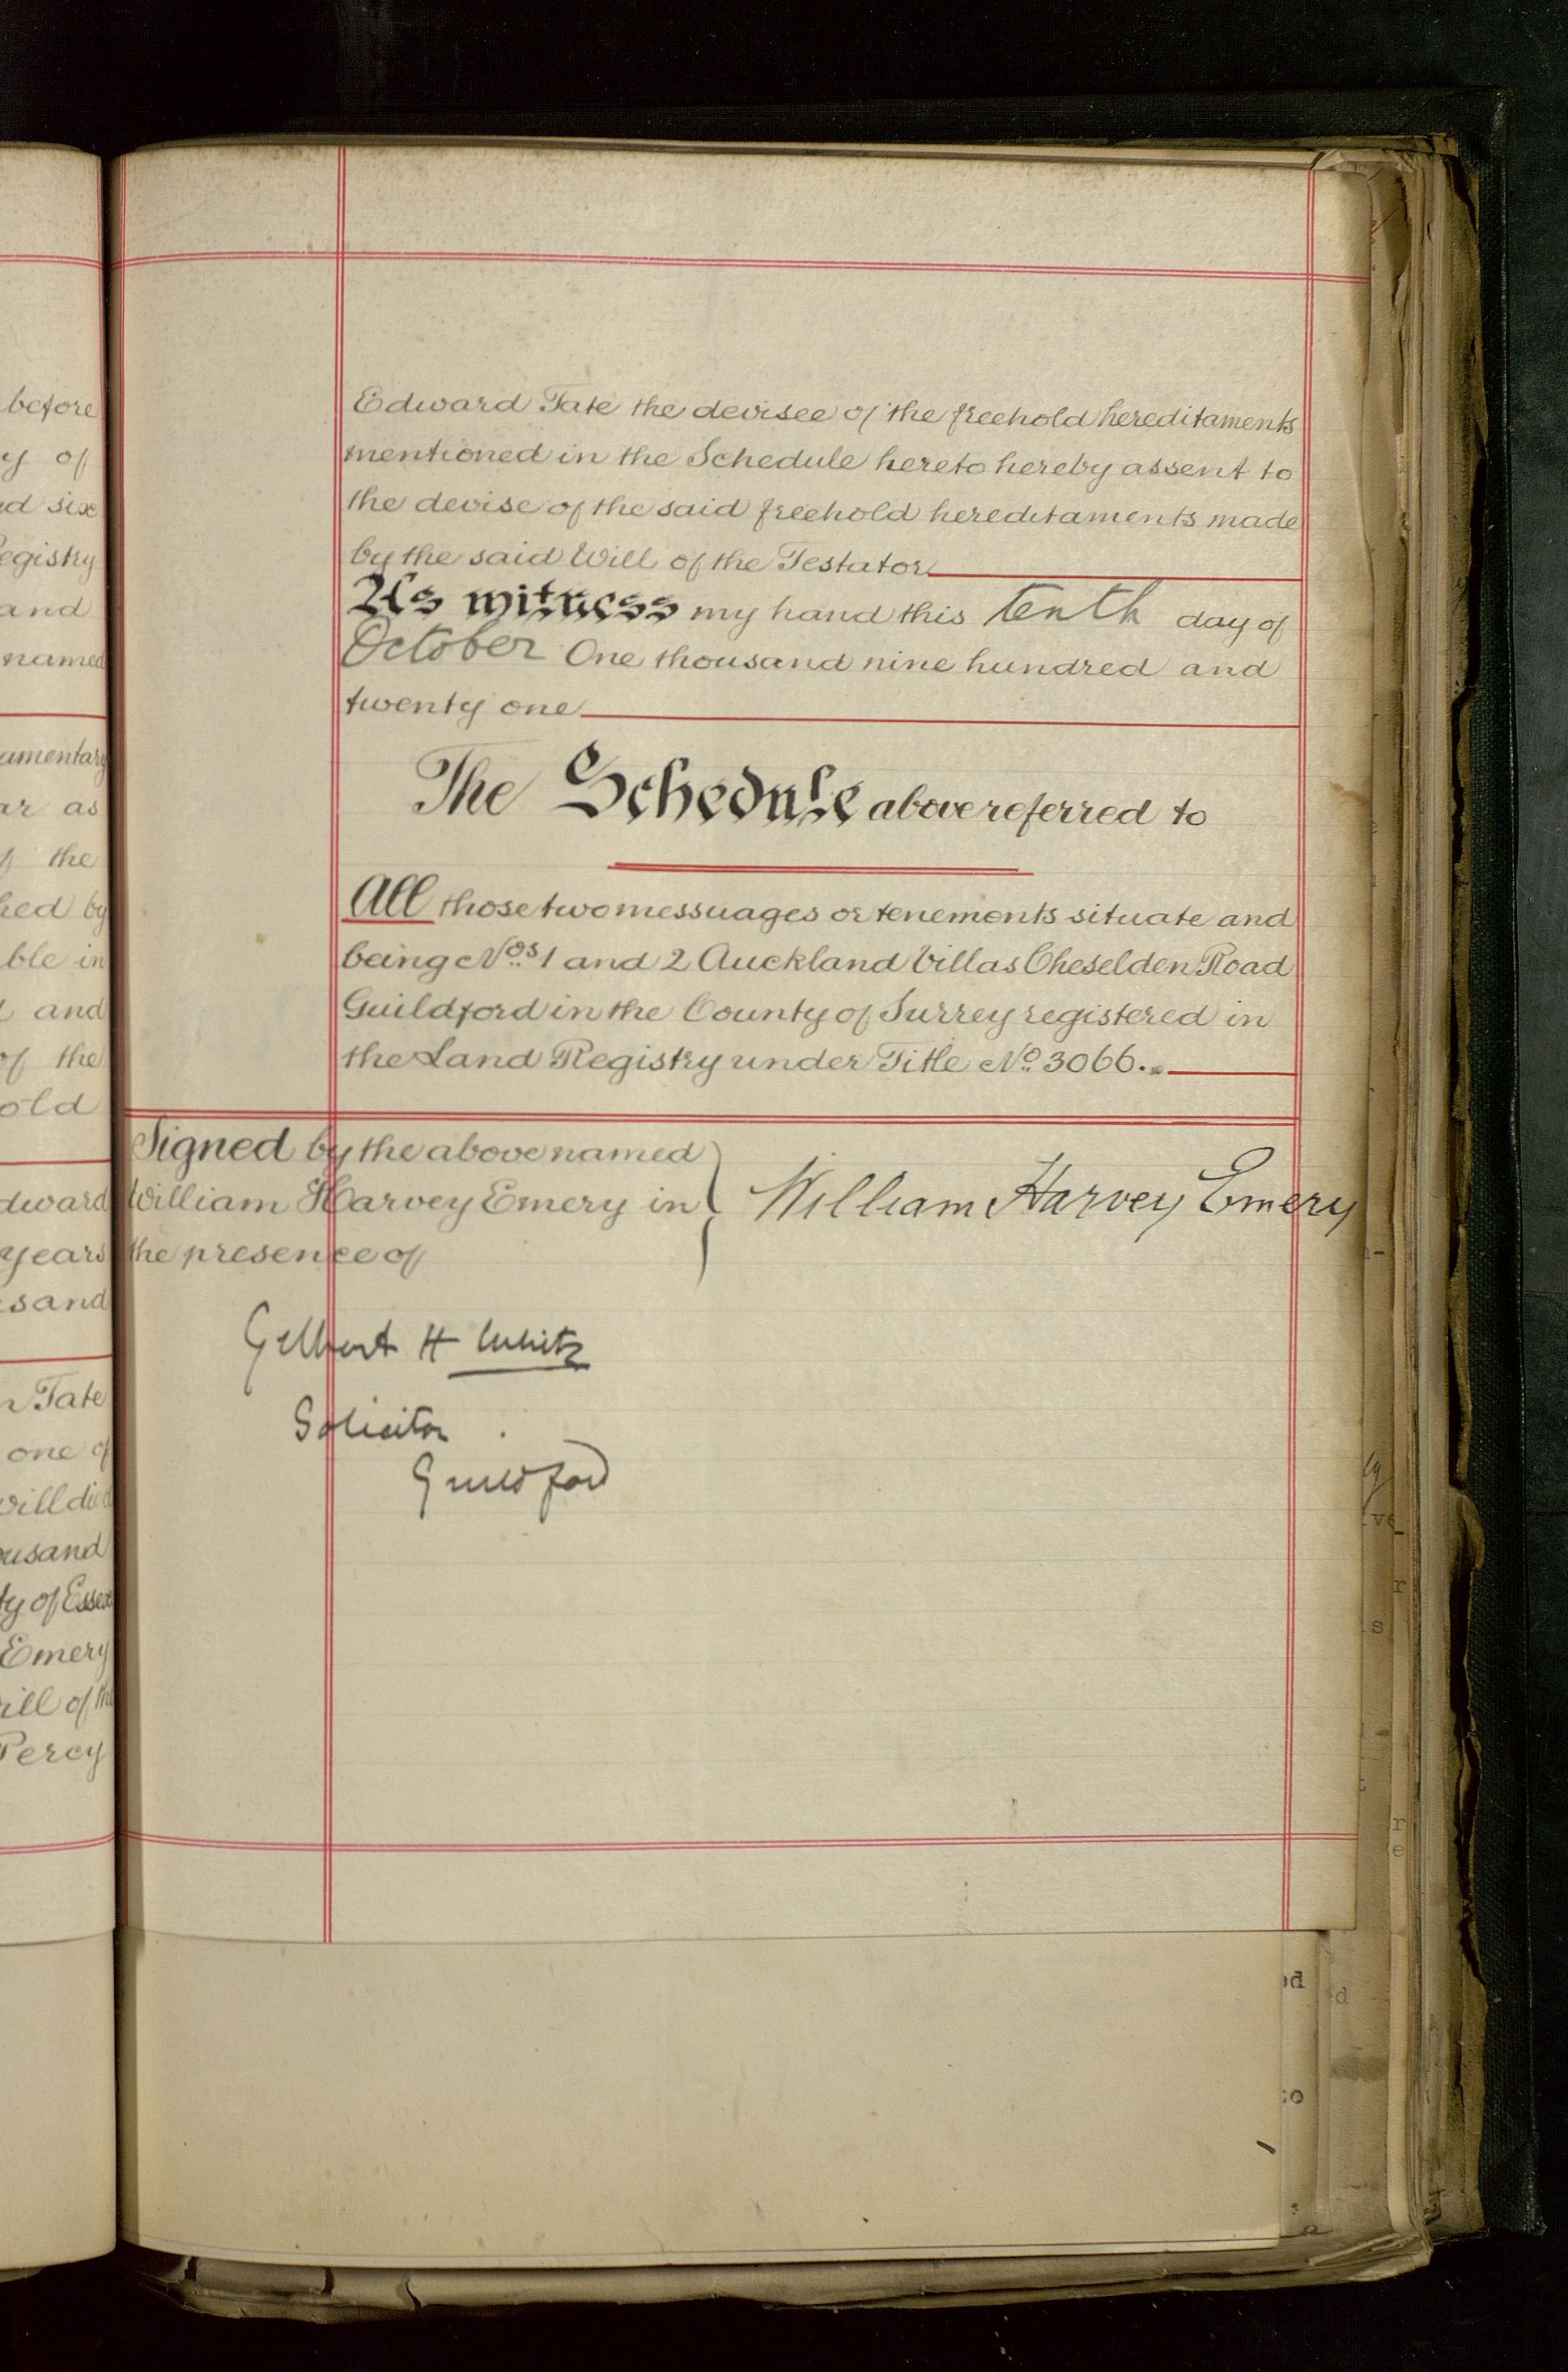 before
y of
d six
egistry
and
named
amentary
ar as
the
hed by
ble in
and
of the
old
dward
years
sand
Tate
one of
will died
ousand
ty of Essex
Emery
ill of the
Percy
Edward Tate the devisee of the freehold hereditaments
mentioned in the Schedule hereto hereby assent to
the devise of the said freehold hereditaments made
by the said Will of the Testator
As witness my hand this tenth day of
October One thousand nine hundred and
twenty one
The Schedule above referred to
All those two messuages or tenements situate and
being Nos. 1 and 2 Auckland Villas Cheselden Road
Guildford in the County of Surrey registered in
the Land Registry under Title No. 3066.
Signed by the above named
William Harvey Emery in
the presence of
William Harvey Emery
Gilbert H White
Solicitor
Guildford